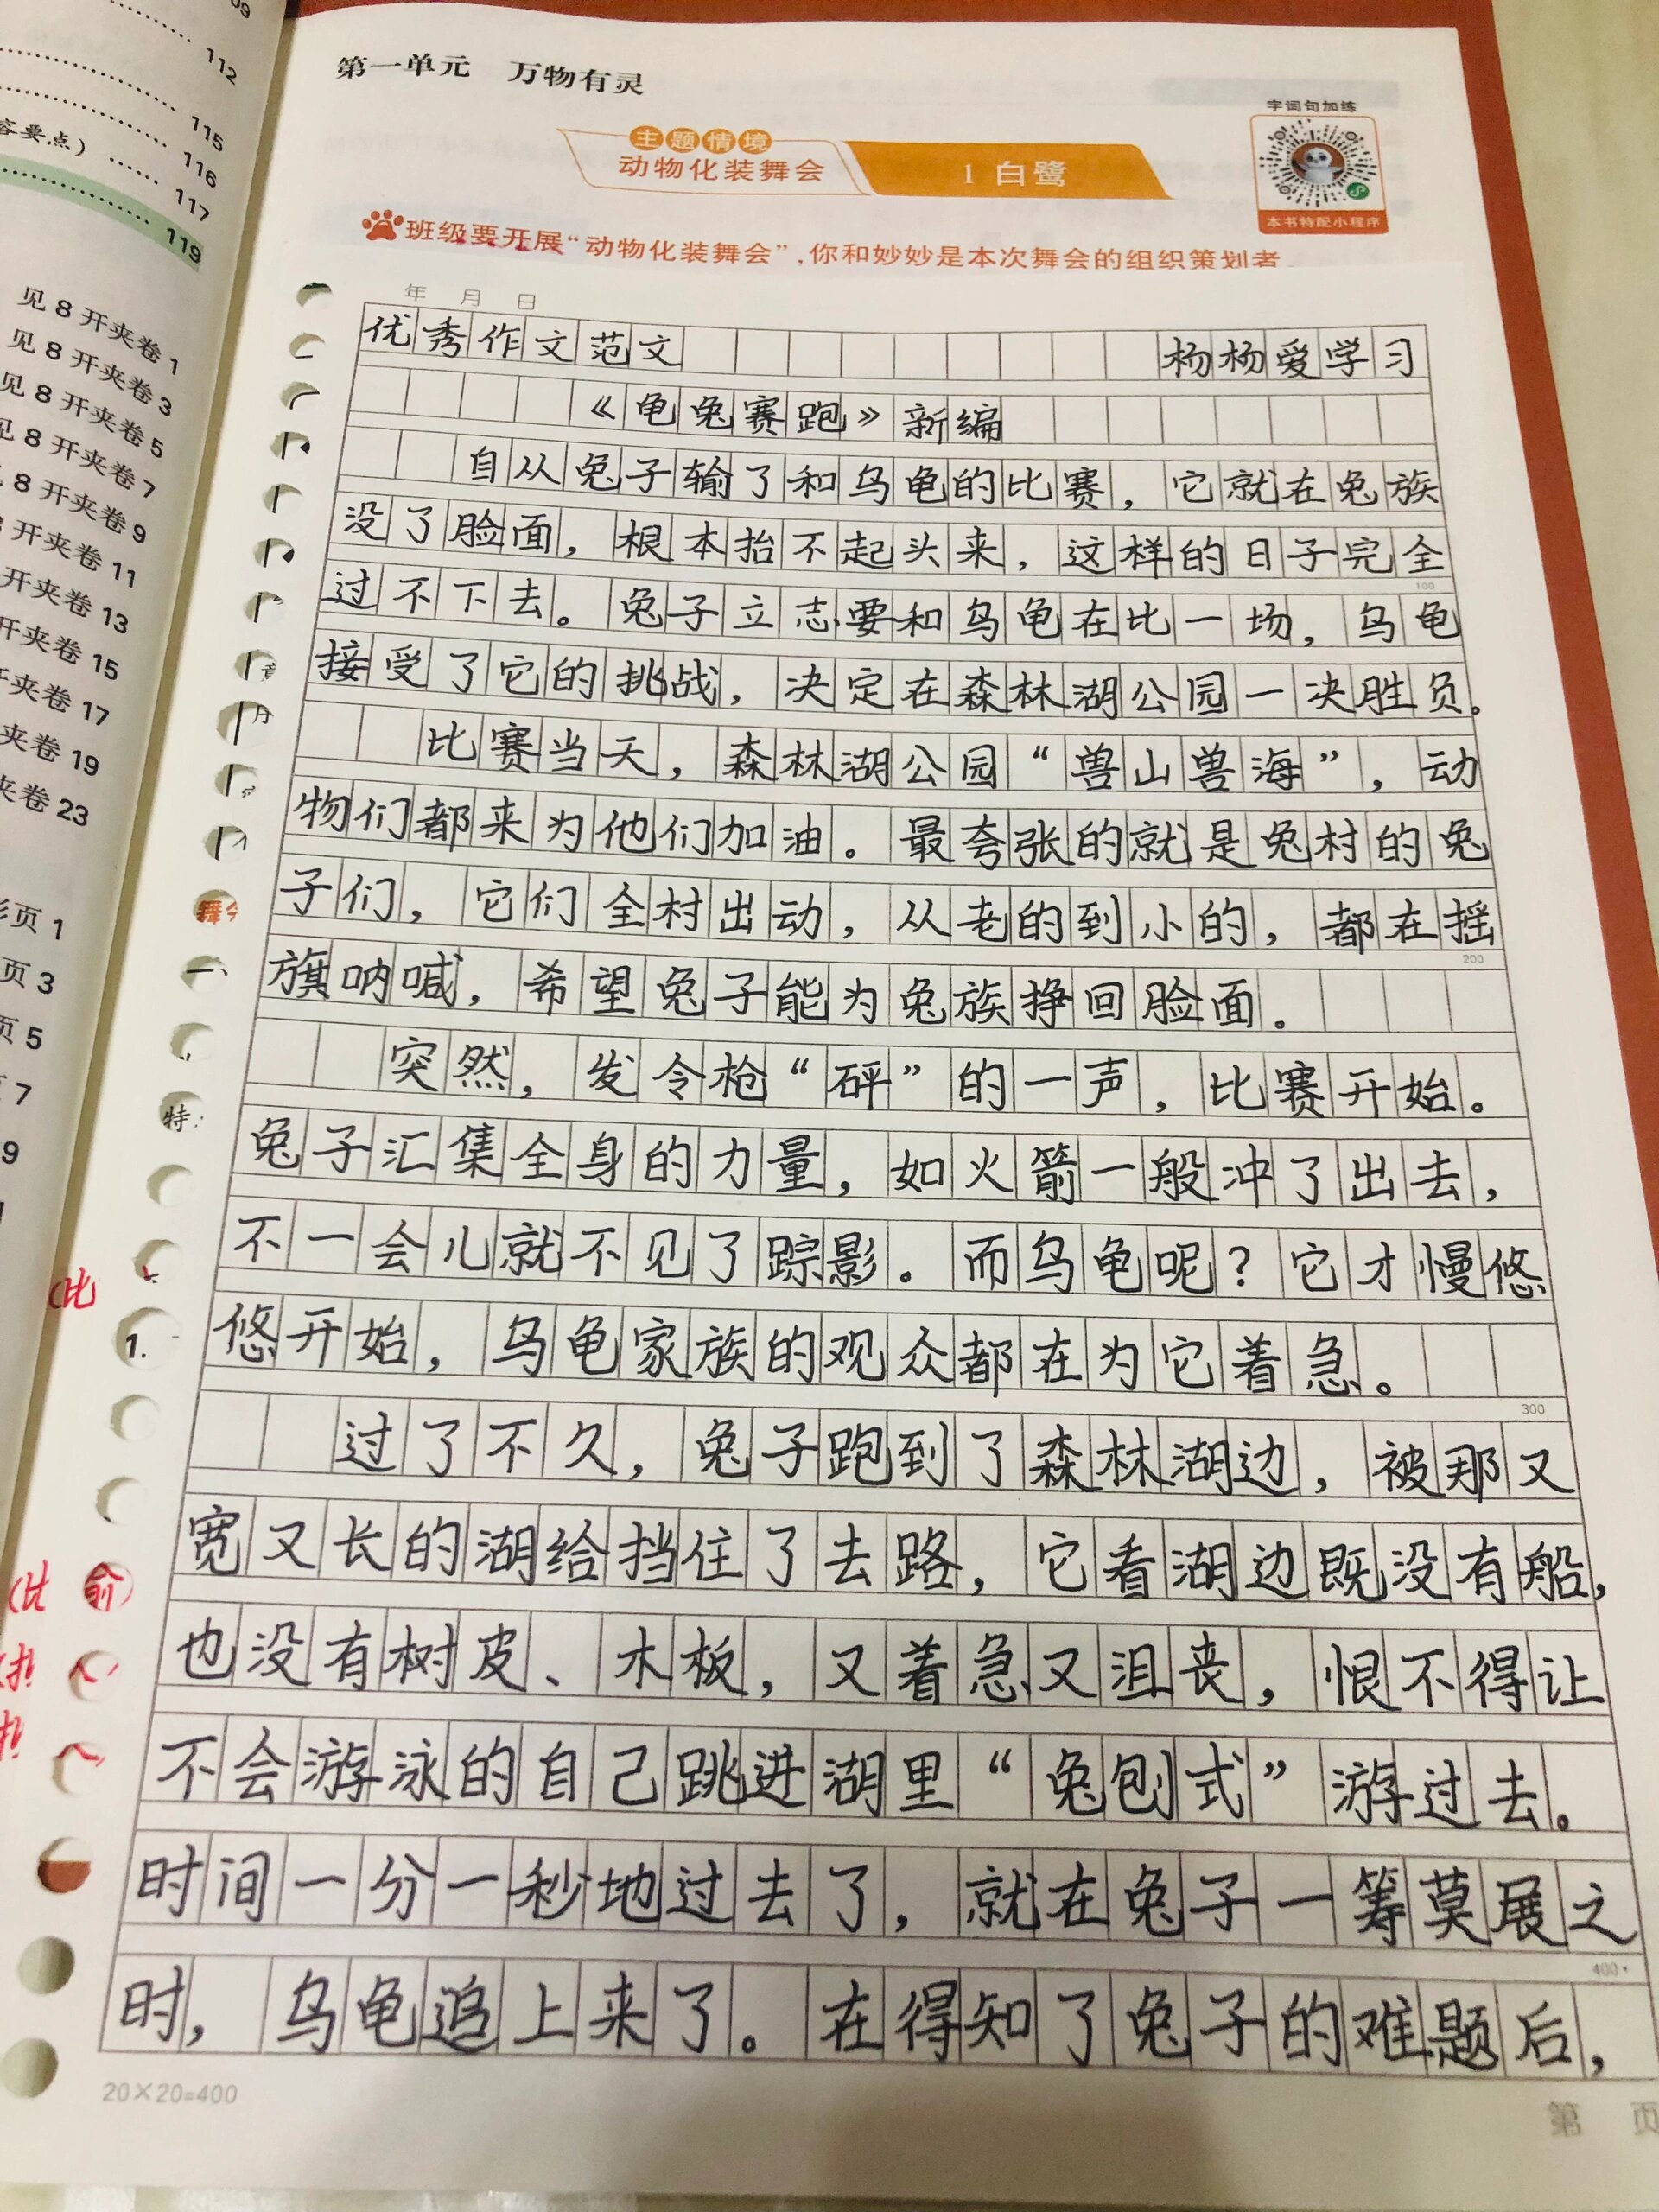 09
112
115
116
容要点） …… 117
119
见 8 开夹卷 1
见 8 开夹卷 3
见 8 开夹卷 5
见 8 开夹卷 7
8 开夹卷 9
开夹卷 11
开夹卷 13
开夹卷 15
开夹卷 17
夹卷 19
夹卷 23
页 1
页 3
页 5
7
9
第一单元 万物有灵
字词句加练
主题情境
动物化装舞会
1 白鹭
本书特配小程序
班级要开展“动物化装舞会”，你和妙妙是本次舞会的组织策划者
年 月 日
优秀作文范文 杨杨爱学习
《龟兔赛跑》新编
自从兔子输了和乌龟的比赛，它就在兔族
没了脸面，根本抬不起头来，这样的日子完全
100
过不下去。兔子立志要和乌龟在比一场，乌龟
接受了它的挑战，决定在森林湖公园一决胜负。
比赛当天，森林湖公园“兽山兽海”，动
物们都来为他们加油。最夸张的就是兔村的兔
子们，它们全村出动，从老的到小的，都在摇
200
旗呐喊，希望兔子能为兔族挣回脸面。
突然，发令枪“砰”的一声，比赛开始。
兔子汇集全身的力量，如火箭一般冲了出去，
不一会儿就不见了踪影。而乌龟呢？它才慢悠
悠开始，乌龟家族的观众都在为它着急。
300
过了不久，兔子跑到了森林湖边，被那又
宽又长的湖给挡住了去路，它看湖边既没有船，
也没有树皮、木板，又着急又沮丧，恨不得让
不会游泳的自己跳进湖里“兔刨式”游过去。
时间一分一秒地过去了，就在兔子一筹莫展之
400
时，乌龟追上来了。在得知了兔子的难题后，
20×20=400
第 页
特
1.
(比
(比